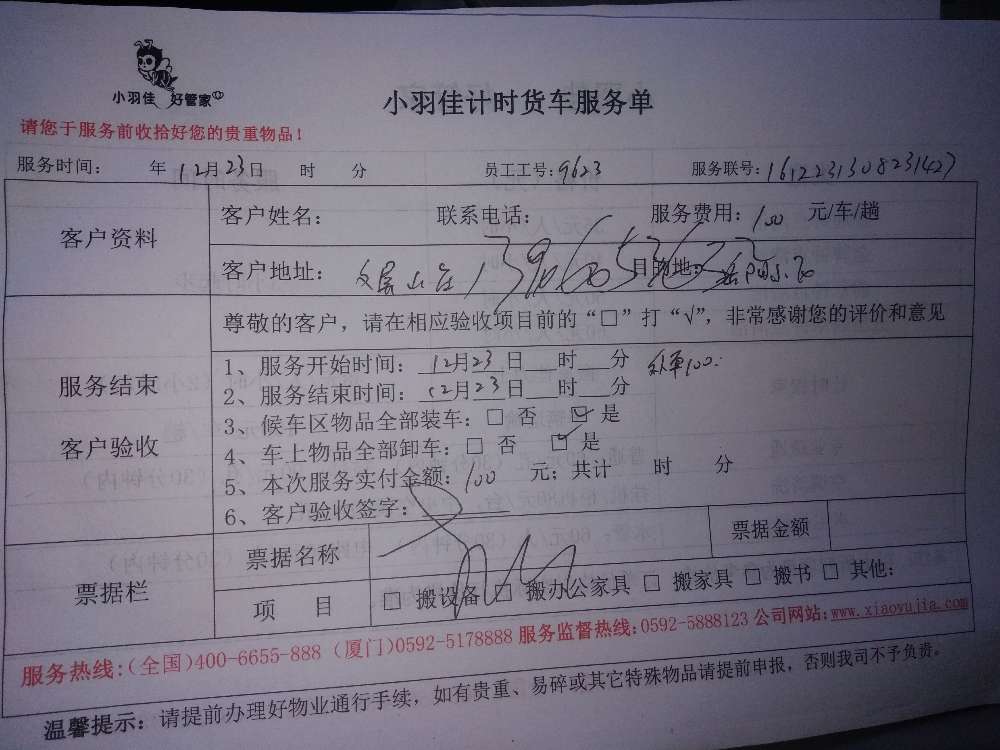 小羽佳 好管家
小羽佳计时货车服务单
请您于服务前收拾好您的贵重物品！
服务时间： 年12月23日 时 分 员工工号：9623 服务联号：1612231308231427
客户资料
客户姓名： 联系电话： 服务费用：100 元/车/趟
客户地址： 目的地：
服务结束
客户验收
尊敬的客户，请在相应验收项目前的“□”打“√”，非常感谢您的评价和意见
1、服务开始时间：12月23日 时 分
2、服务结束时间：12月23日 时 分
3、候车区物品全部装车：□ 否 ☑ 是
4、车上物品全部卸车：□ 否 ☑ 是
5、本次服务实付金额：100 元；共计 时 分
6、客户验收签字：
票据栏
票据名称 票据金额
项 目 □ 搬设备 □ 搬办公家具 □ 搬家具 □ 搬书 □ 其他：
服务热线：(全国)400-6655-888 (厦门)0592-5178888 服务监督热线：0592-5888123 公司网站：www.xiaoyujia.com
温馨提示：请提前办理好物业通行手续，如有贵重、易碎或其它特殊物品请提前申报，否则我司不予负责。